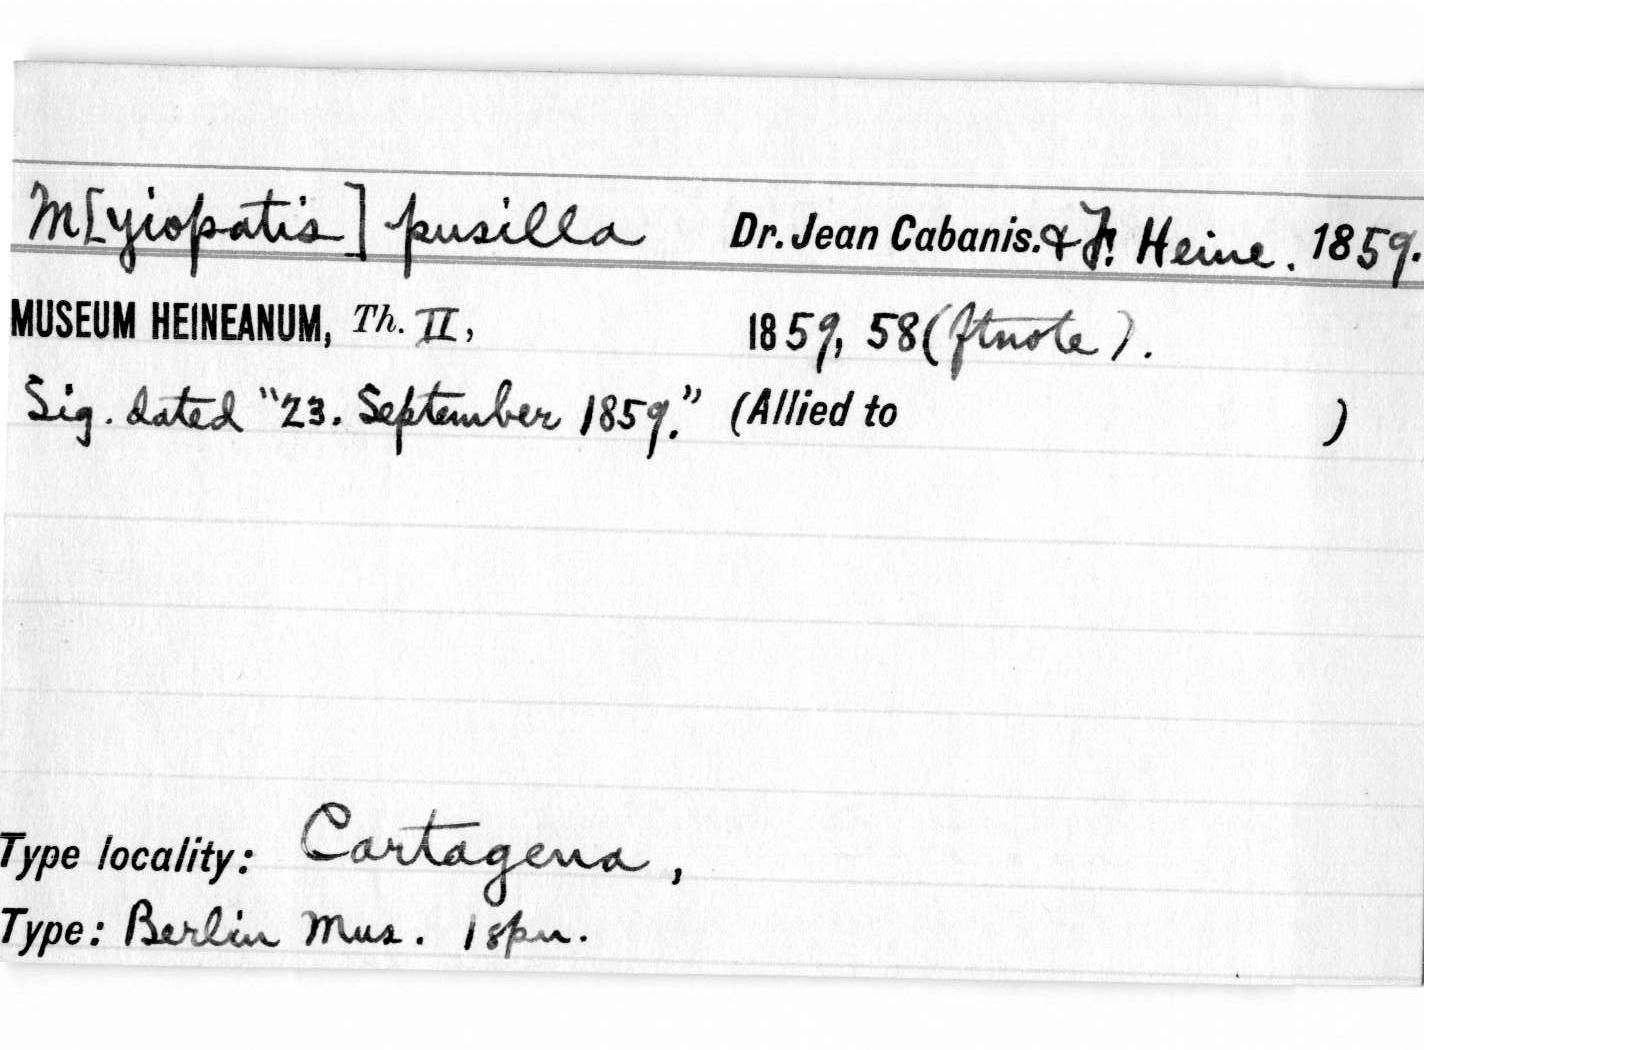 M[yiopatis] pusilla Dr. Jean Cabanis. & F. Heine. 1859.
MUSEUM HEINEANUM, Th. II, 1859, 58 (ftnote).
Sig. dated "23. September 1859." (Allied to )
Type locality: Cartagena,
Type: Berlin Mus. 1 spn.